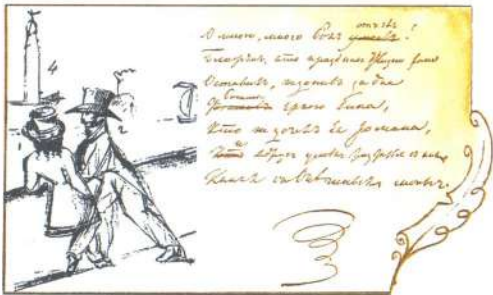 4
2
О много, много Рокъ отъялъ!
Блаженъ, кто праздникъ Жизни рано
Оставилъ, недопивъ до дна
вина,
Кто не дочелъ Ее романа,
вдругъ умѣлъ разстаться съ нимъ
Какъ я съ Онѣгинымъ моимъ.